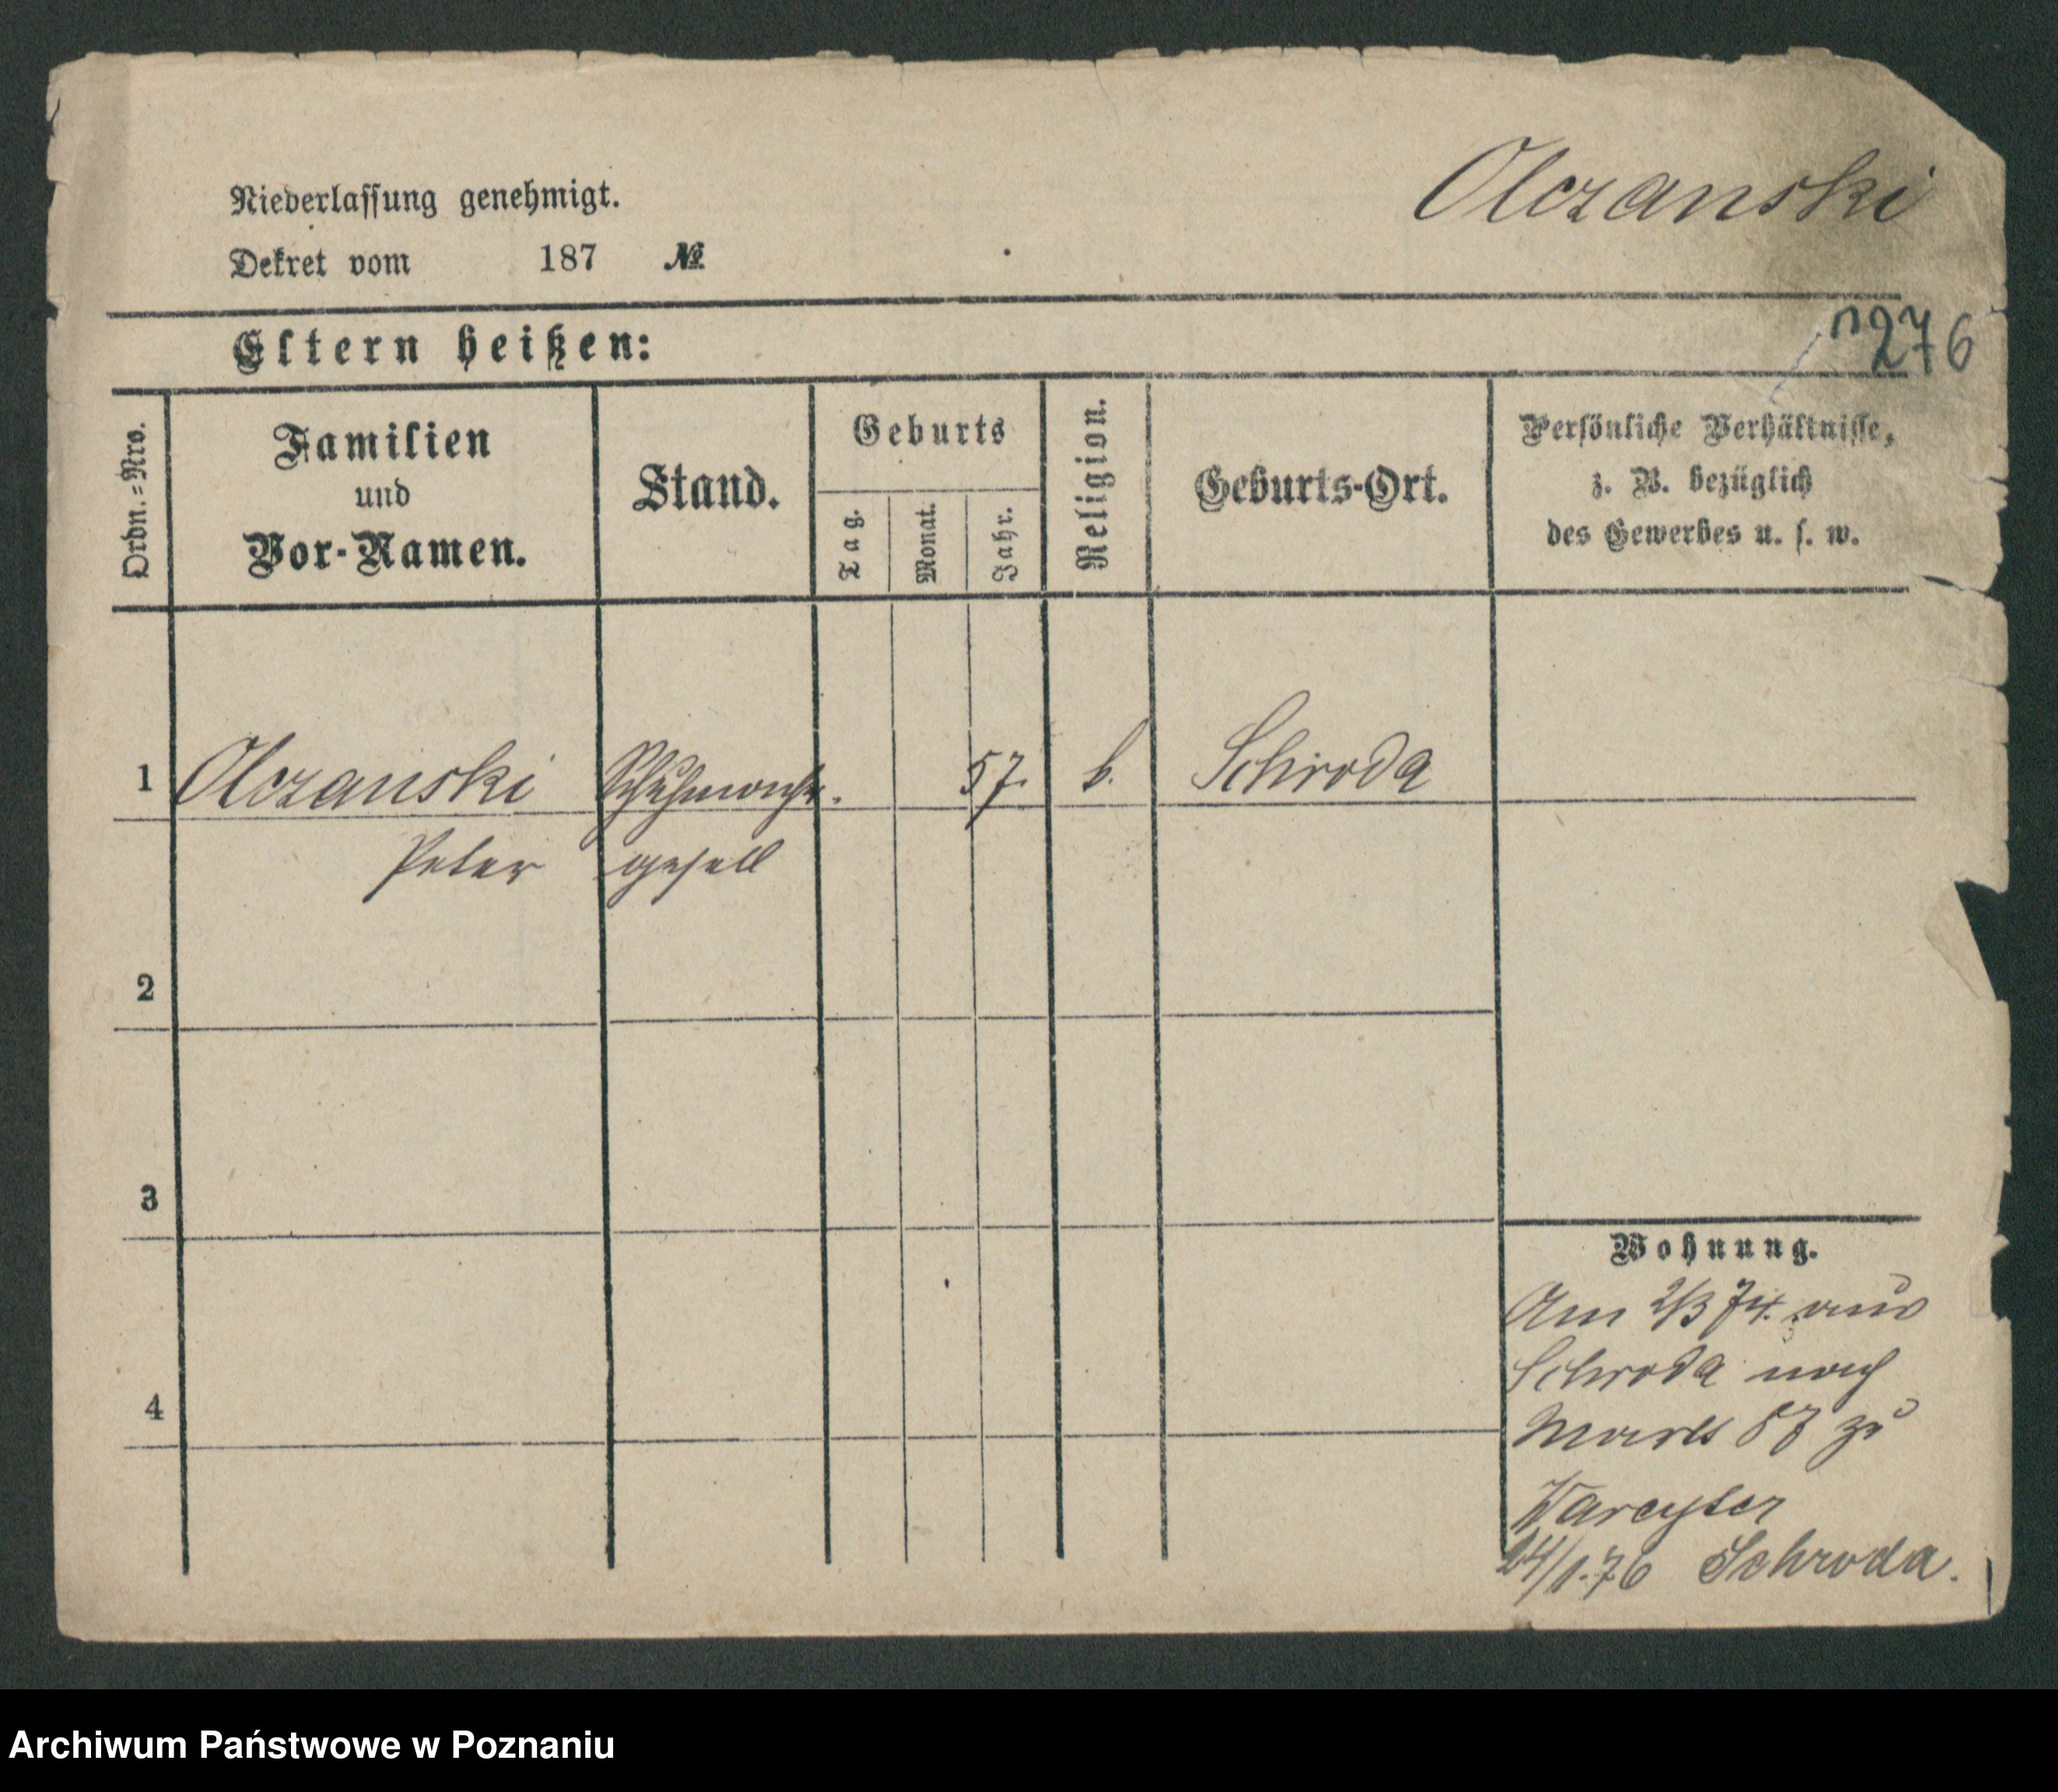 Olczanski
Niederlassung genehmigt.
Dekret vom 187 №
276
Eltern heißen:
Ordn.=Nro.
Familien
und
Vor-Namen.
Stand.
Geburts
Tag.
Monat.
Jahr.
Religion.
Geburts-Ort.
Persönliche Verhältnisse,
z. B. bezüglich
des Gewerbes u. s. w.
1 Olczanski Schuhmach. 57. k. Schroda
Peter gesell
2
3
4
Wohnung.
Am 2/3 74. aus
Schroda nach
87 zu
24/1.76 Schroda.
Archiwum Państwowe w Poznaniu